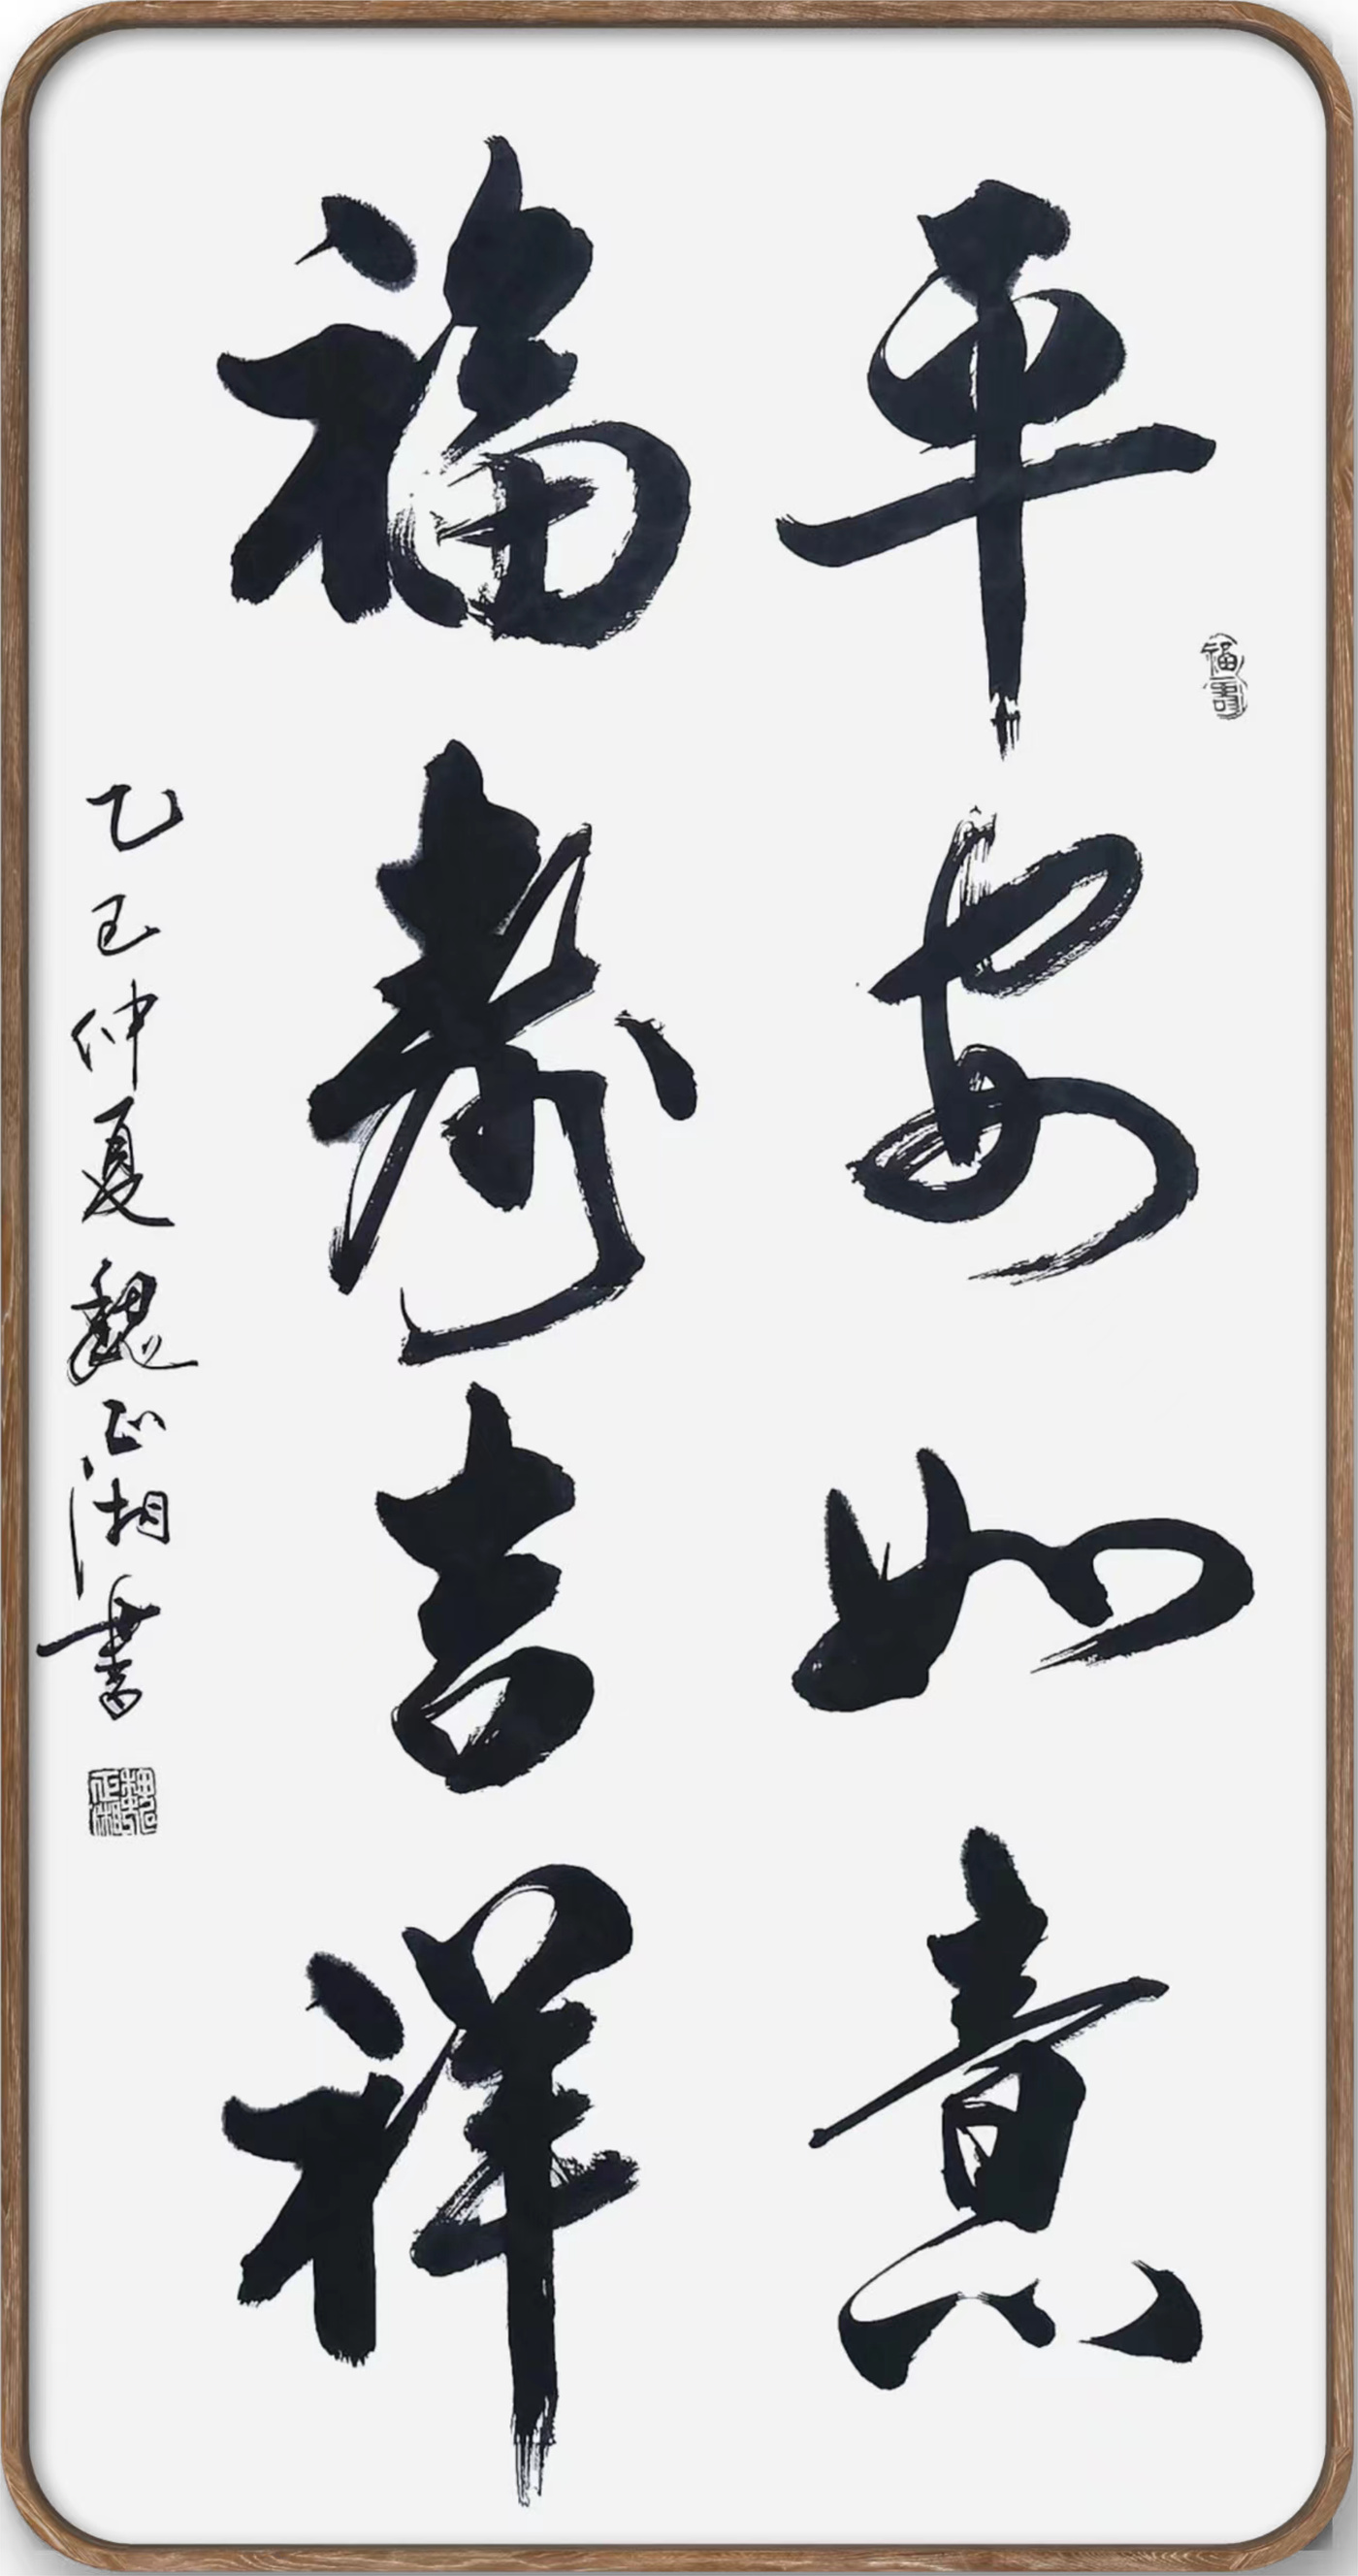 平安如意
福寿吉祥
乙巳仲夏魏正湘书
魏正湘